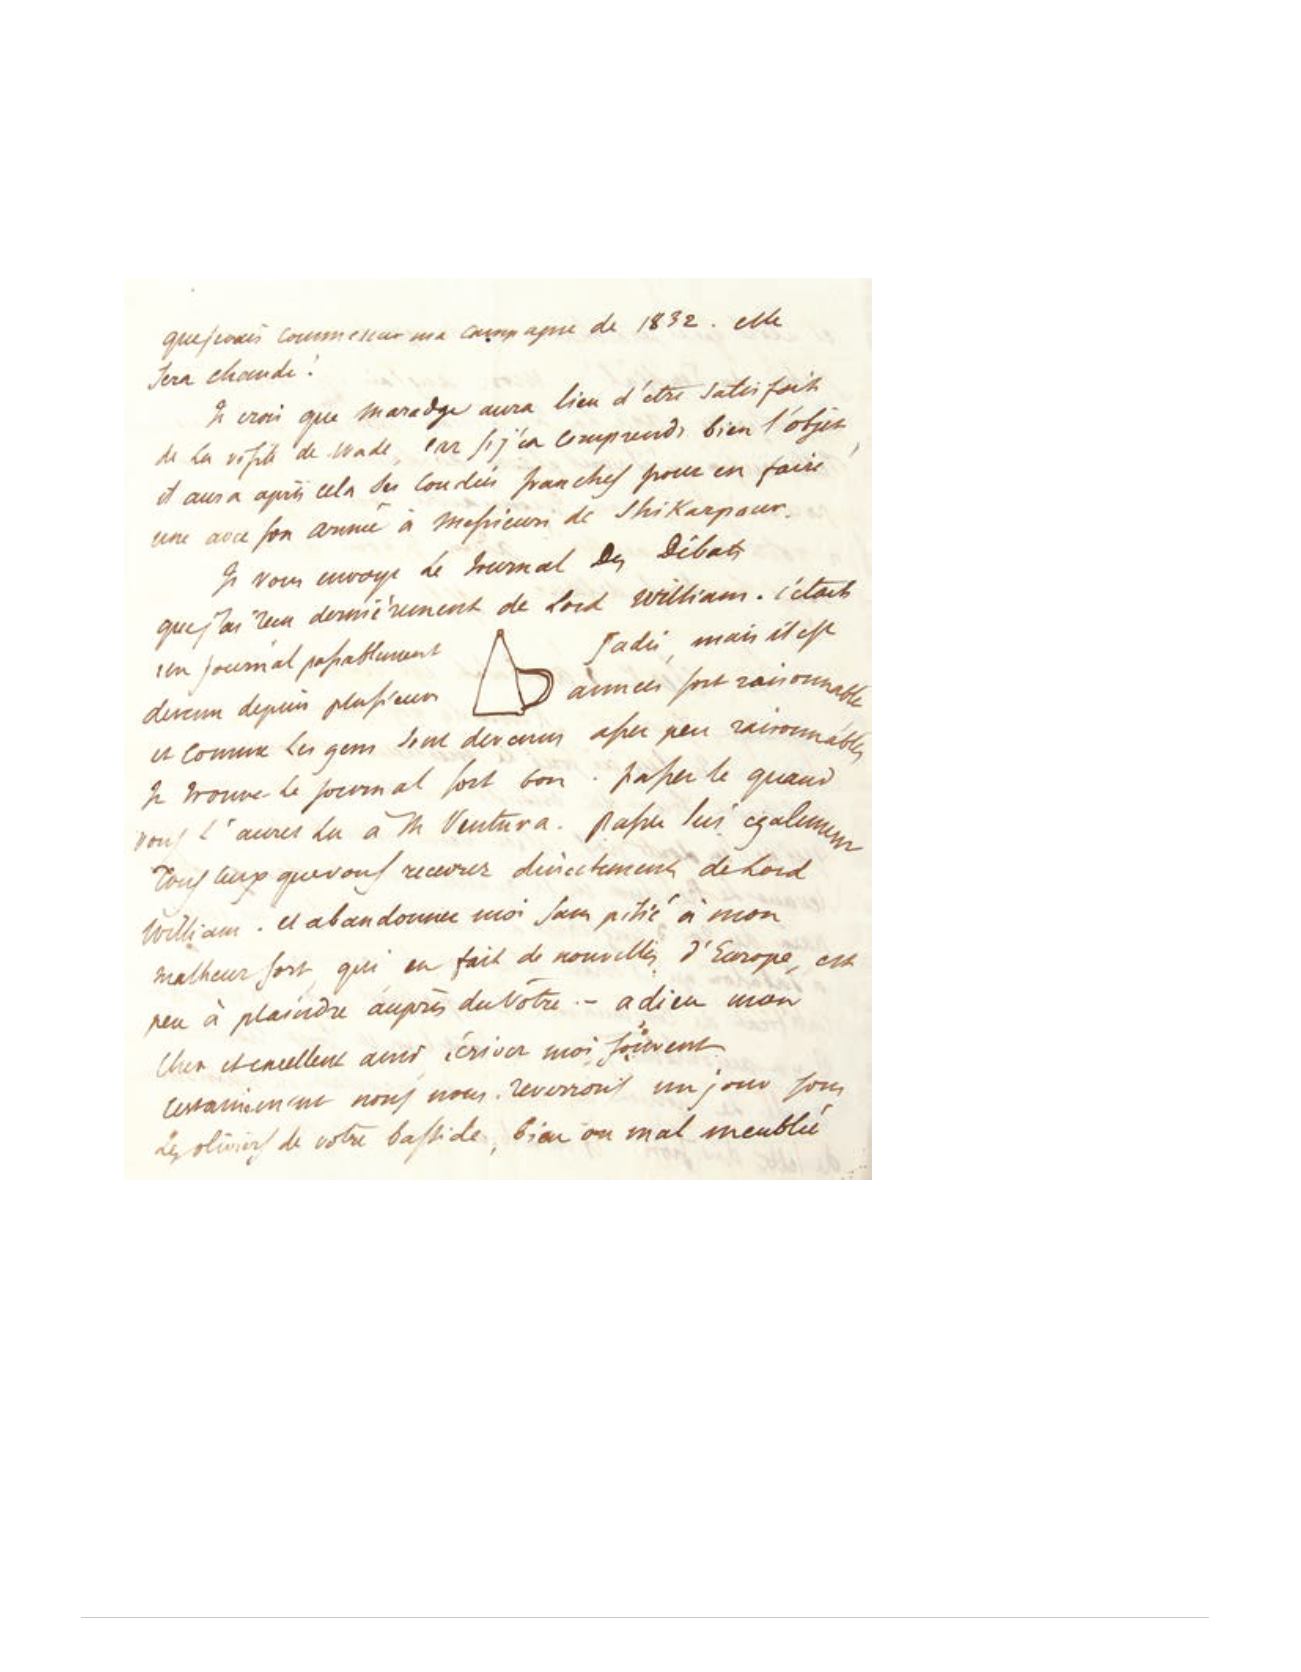 que je vais commencer ma campagne de 1832. elle
sera chaude!
Je crois que maradge aura lieu d'être satisfait
de la visite de Wade, car si j'en comprends bien l'objet,
il aura après cela ses coudées franches pour en faire
une avec son armée à messieurs de Shikarpour.
Je vous envoye le Journal Des Débats
que j'ai reçu dernièrement de Lord William. c'étoit
un journal passablement jadis, mais il est
devenu depuis plusieurs années fort raisonnable
et comme les gens sont devenus assez peu raisonnables
Je trouve le journal fort bon. passez le quand
vous l'aurez lu à M Ventura. passez lui également
tous ceux que vous recevrez directement de Lord
William. et abandonnez moi sans pitié à mon
malheureux sort, qui en fait de nouvelles d'Europe, est
peu à plaindre auprès du Vôtre. - adieu mon
cher et excellent ami écrivez moi souvent
certainement nous nous reverrons un jour sous
les oliviers de votre bastide, bien ou mal meublée